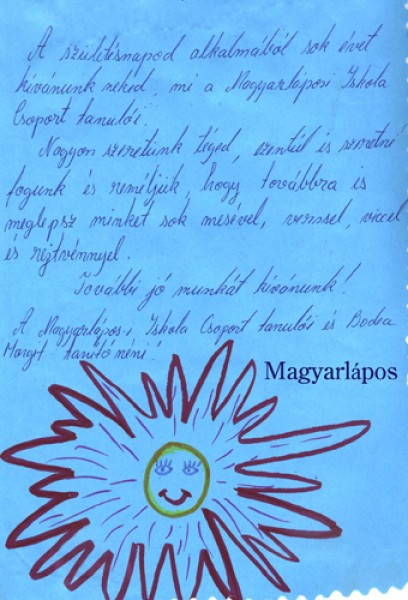 A születésnapod alkalmából sok évet
kívánunk neked, mi a Magyarláposi Iskola
Csoport tanulói.
Nagyon szeretünk téged, ezentúl is szeretni
fogunk és reméljük, hogy továbbra is
meglepsz minket sok mesével, verssel, viccel
és rejtvénnyel.
További jó munkát kívánunk!
A Magyarláposi Iskola Csoport tanulói és
Margit tanító néni!
Magyarlápos